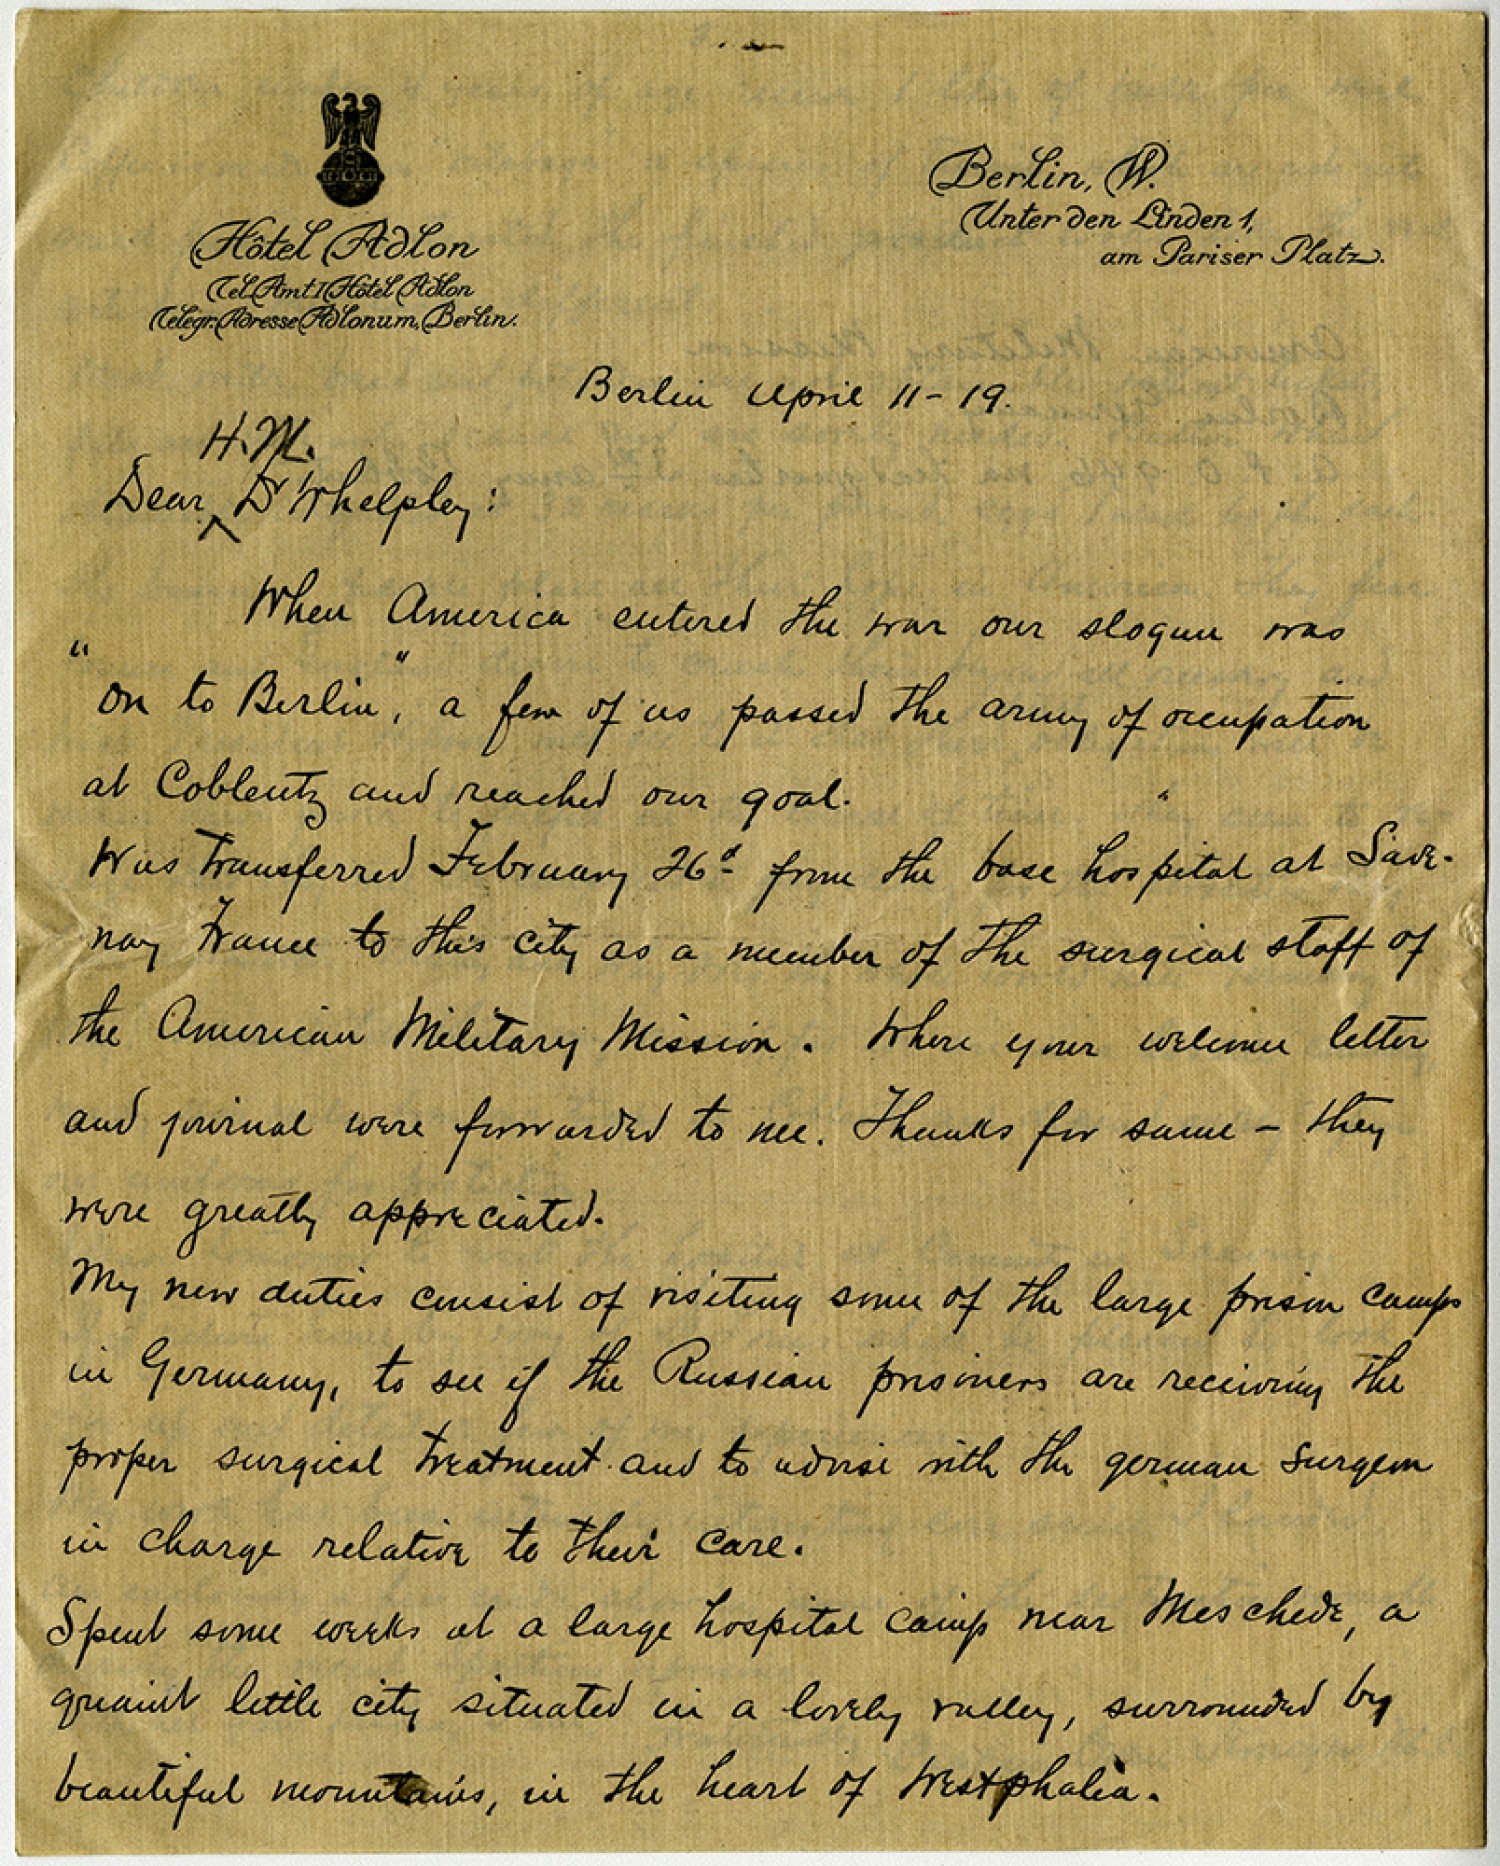 Hôtel Adlon
Tel. Amt I Hôtel Adlon
Telegr. Adresse Adlonum, Berlin.
Berlin, W.
Unter den Linden 1,
am Pariser Platz.
Berlin April 11-19.
H.M.
Dear Dr Whelpley:
When America entered the war our slogan was
"on to Berlin", a few of us passed the army of occupation
at Coblentz and reached our goal.
Was transferred February 26d from the base hospital at Save-
nay France to this city as a member of the surgical staff of
the American Military Mission. Where your welcome letter
and journal were forwarded to me. Thanks for same - they
were greatly appreciated.
My new duties consist of visiting some of the large prison camps
in Germany, to see if the Russian prisoners are receiving the
proper surgical treatment and to advise with the german surgeon
in charge relative to their care.
Spent some weeks at a large hospital camp near Meschede, a
quaint little city situated in a lovely valley, surrounded by
beautiful mountains, in the heart of Westphalia.